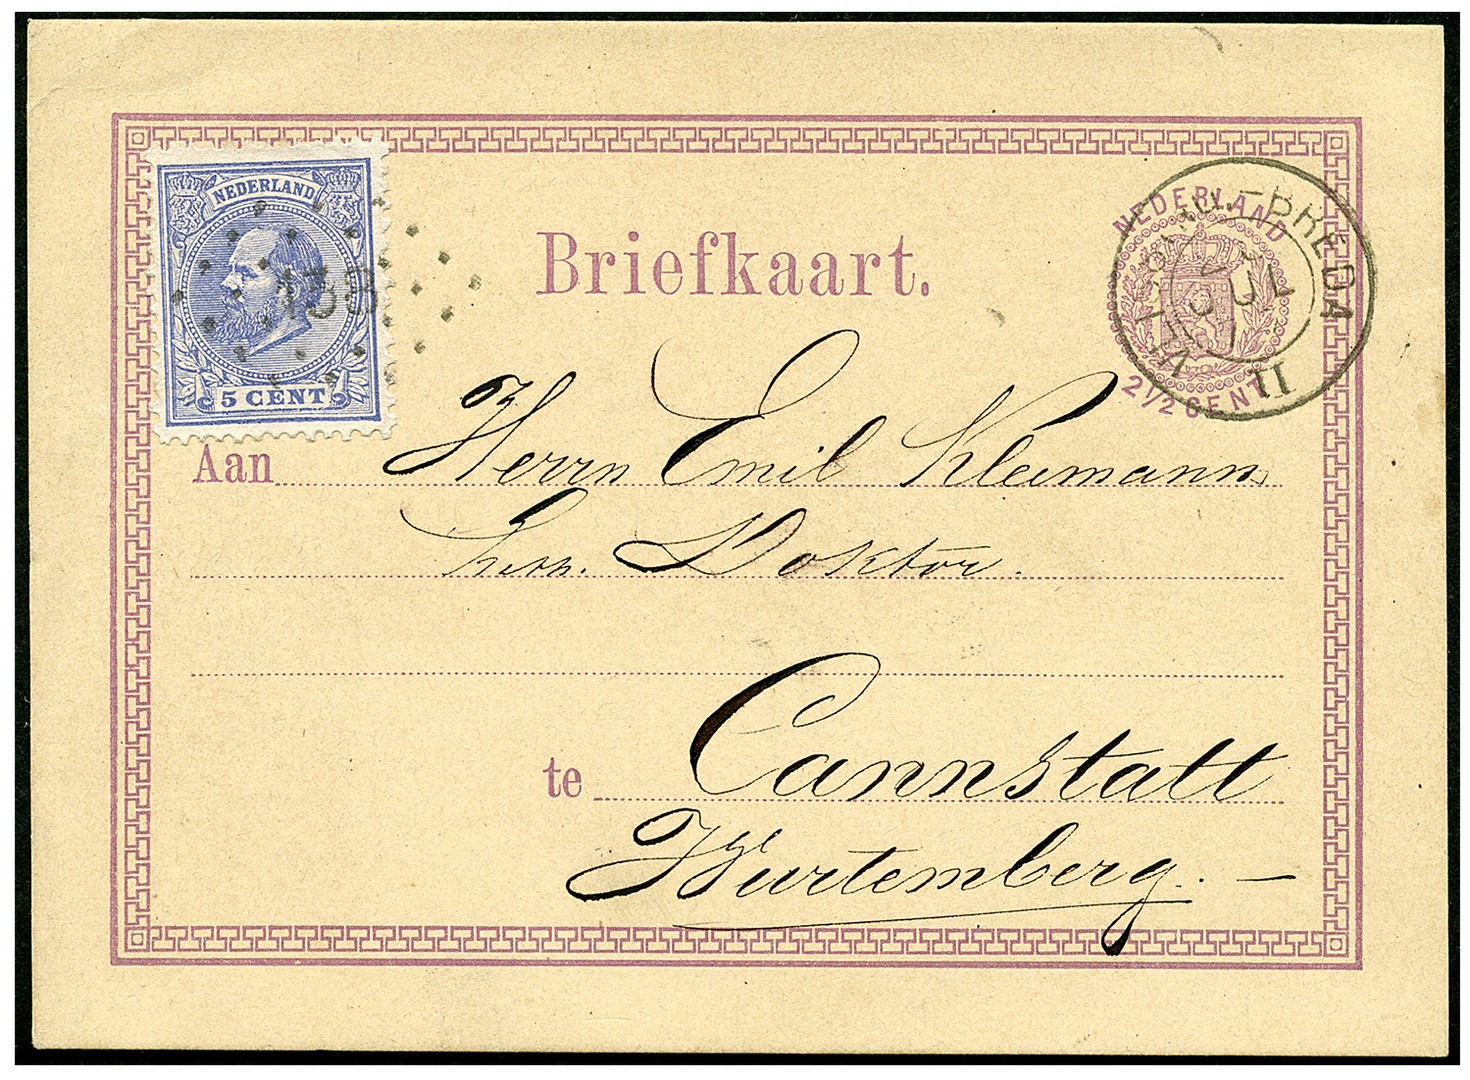 NEDERLAND
138
5 CENT
Briefkaart.
NEDERLAND
2 1/2 CENT
BREDA
II
Aan Herrn Emil Kleemann
Doktor.
te Cannstatt
Wurtemberg. —